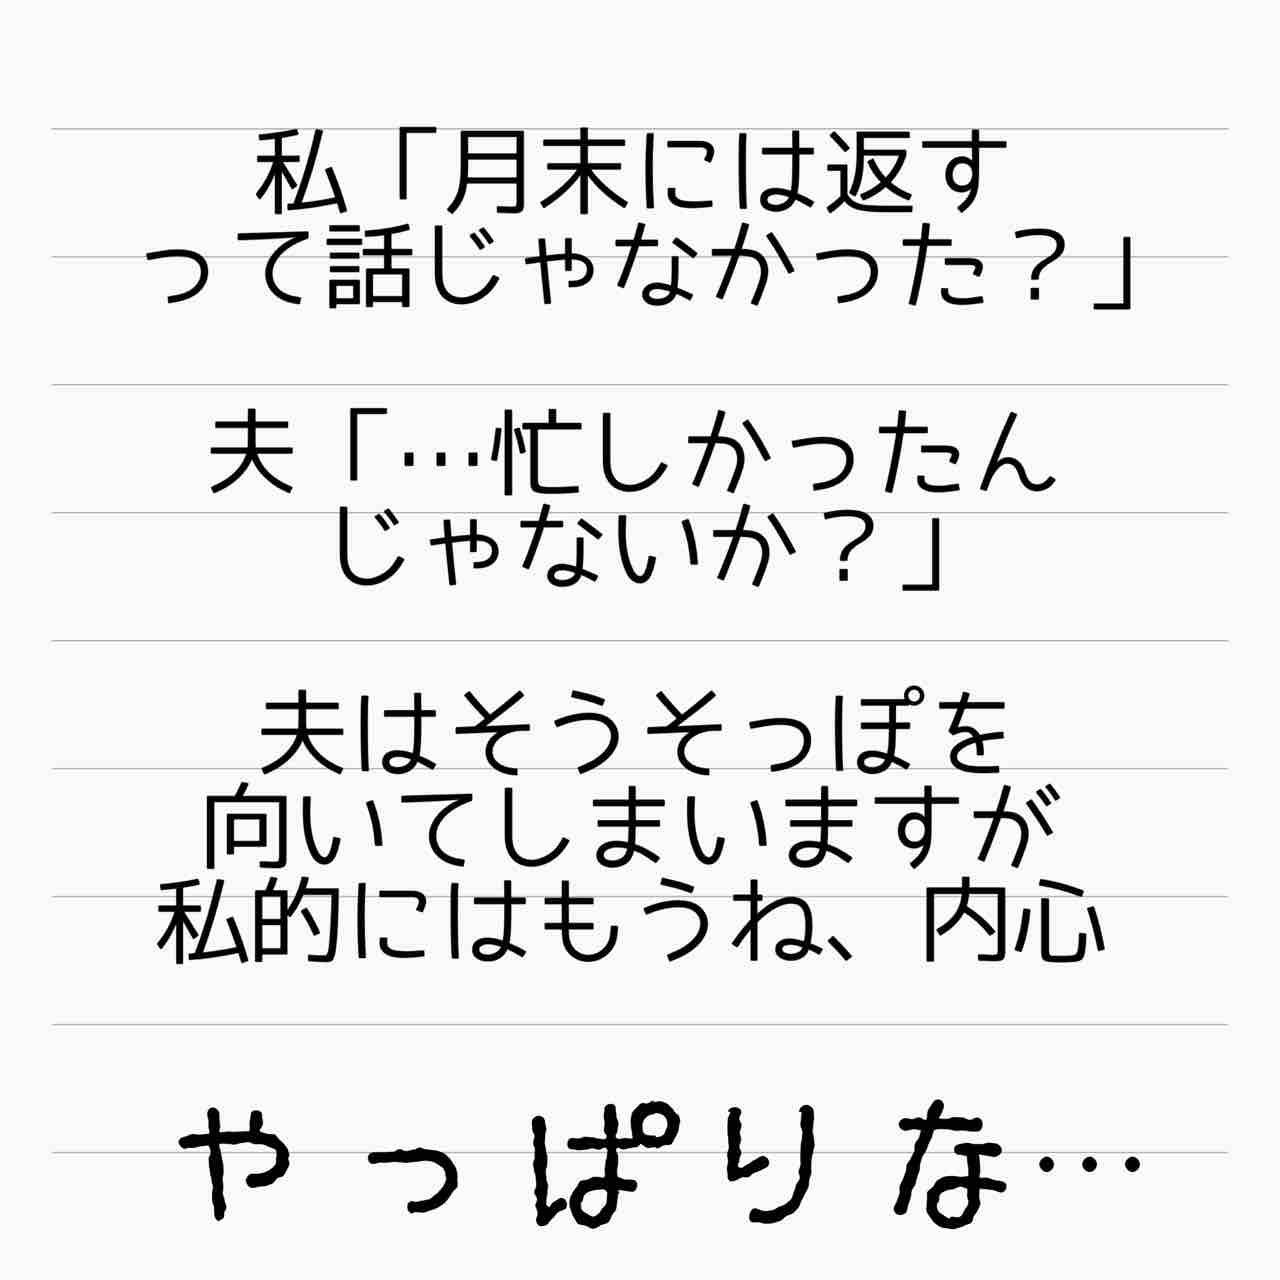 私「月末には返す
って話じゃなかった？」
夫「…忙しかったん
じゃないか？」
夫はそうそっぽを
向いてしまいますが
私的にはもうね、内心
やっぱりな…